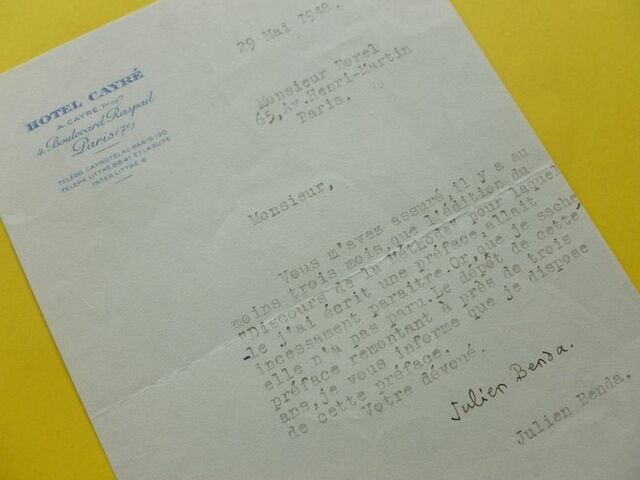 HOTEL CAYRÉ
A. CAYRE Propre
4, Boulevard Raspail
Paris (7e)
TELÉGR. CAYROTELAC PARIS-120
TELEPH. LITTRÉ 88-41 ET LA SUITE
INTER LITTRÉ 8
29 Mai 1948.
Monsieur Borel
65, Av. Henri-Martin
Paris.
Monsieur,
Vous m'avez assuré, il y a au
moins trois mois, que l'édition du
"Discours de la Méthode" pour laquel
-le j'ai écrit une préface, allait
incessament paraitre. Or, que je sache
elle n'a pas paru. Le dépôt de cette
préface remontant à près de trois
ans, je vous informe que je dispose
de cette préface.
Votre dévoué.
Julien Benda.
Julien Benda.